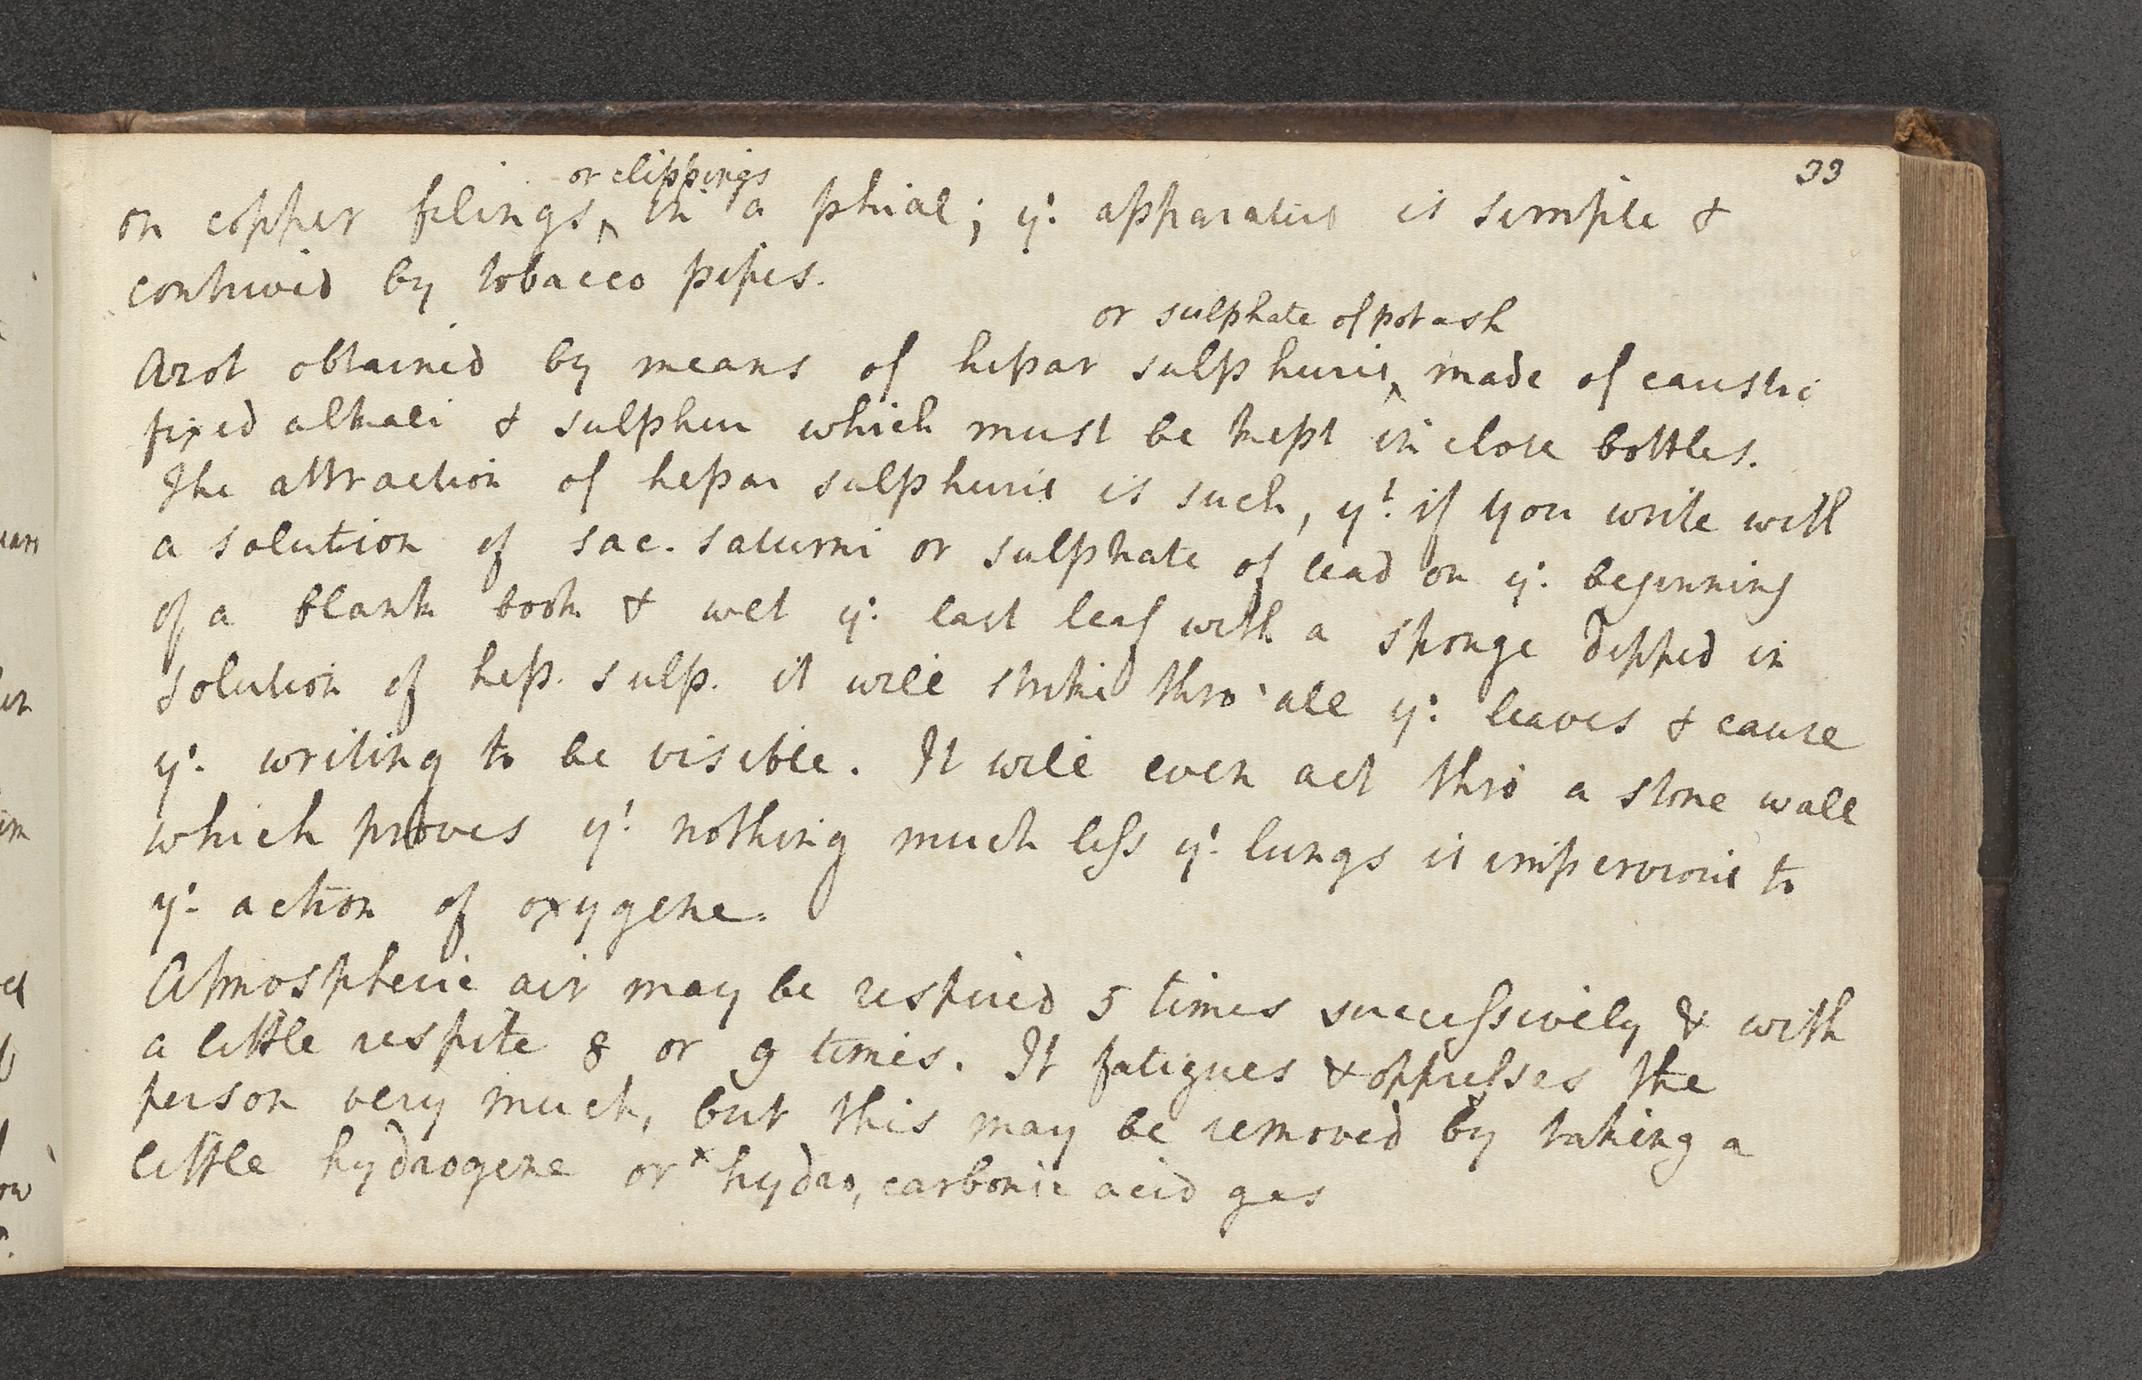 33
or clippings
on copper filings ‸ in a phial; yᵉ. apparatus is simple &
contrived by tobacco pipes.
or sulphate of potash
Azot obtained by means of hepar sulphuris ‸ made of caustic
fixed alkali & sulphur which must be kept in close bottles.
The attraction of hepar sulphuris is such, yᵗ. if you write with
a solution of sac. saturni or sulphate of lead on yᵉ. beginning
of a blank book & wet yᵉ. last leaf with a sponge dipped in
solution of hep. sulp. it will strike thro' all yᵉ. leaves & cause
yᵉ. writing to be visible. It will even act thro' a stone wall
which proves yᵗ. nothing much leſs yᵉ. lungs is impervious to
yᵉ. action of oxygene.
Atmospheric air may be respired 5 times succeſsively & with
a little respite 8 or 9 times. It fatigues & oppreſses the
person very much, but this may be removed by taking a
little hydrogene or ˣ hydro, carbonic acid gas